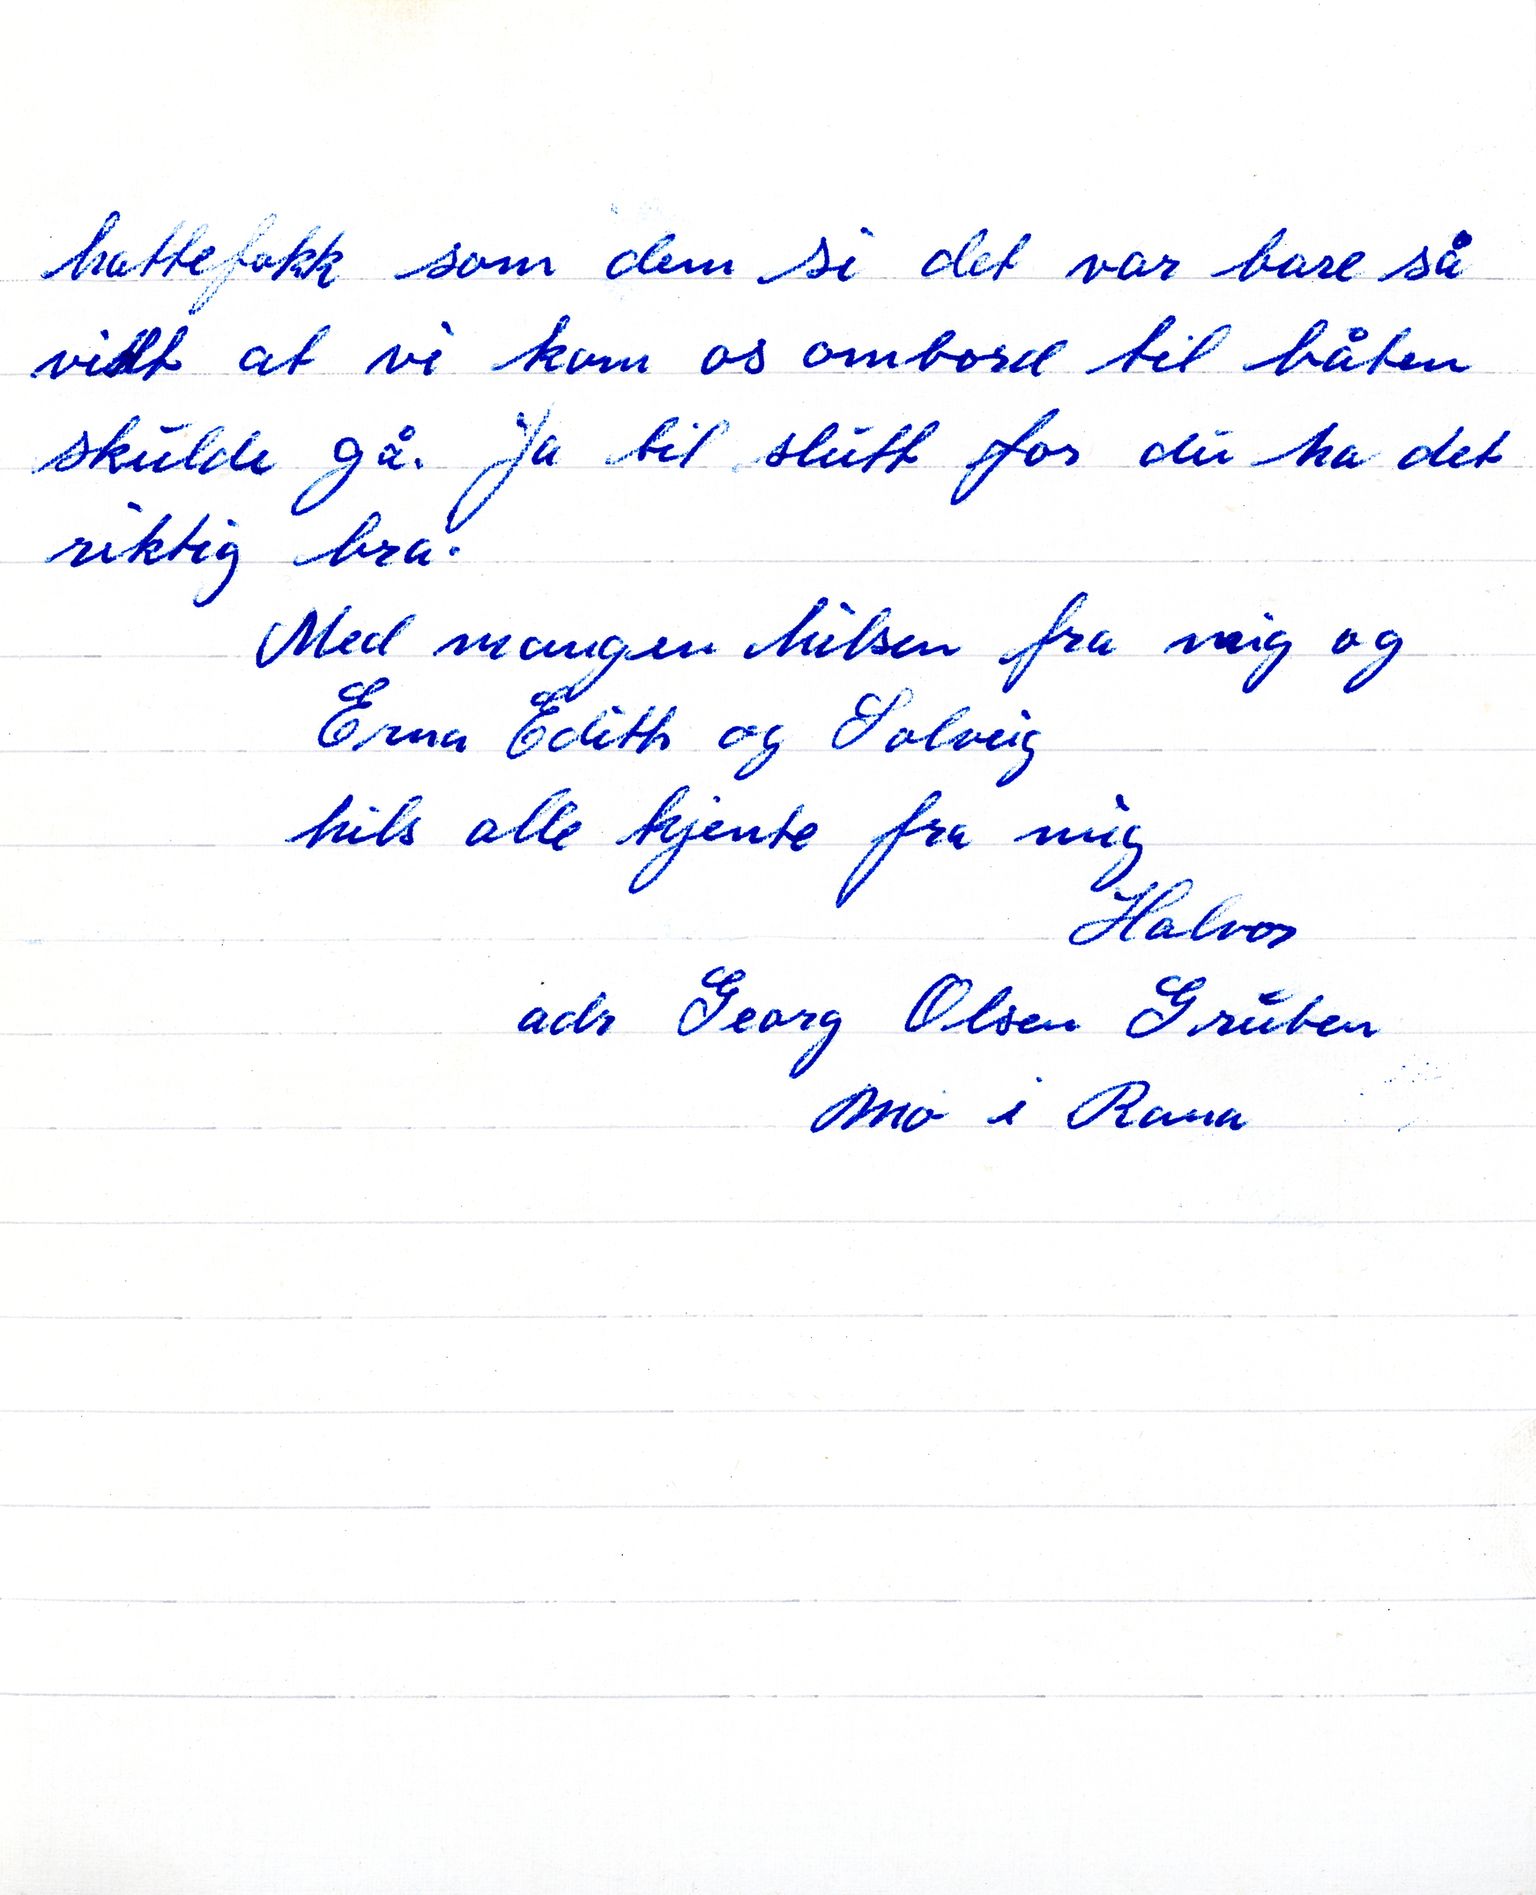 hattefokk som dem si det var bare så
vidt at vi kom os ombord til båten
skulde gå. Ja til slutt for du ha det
riktig bra.
Med mangen hilsen fra mig og
Erna Edith og Solveig
hils alle kjente fra mig
Halvor
adr Georg Olsen Gruben
Mo i Rana